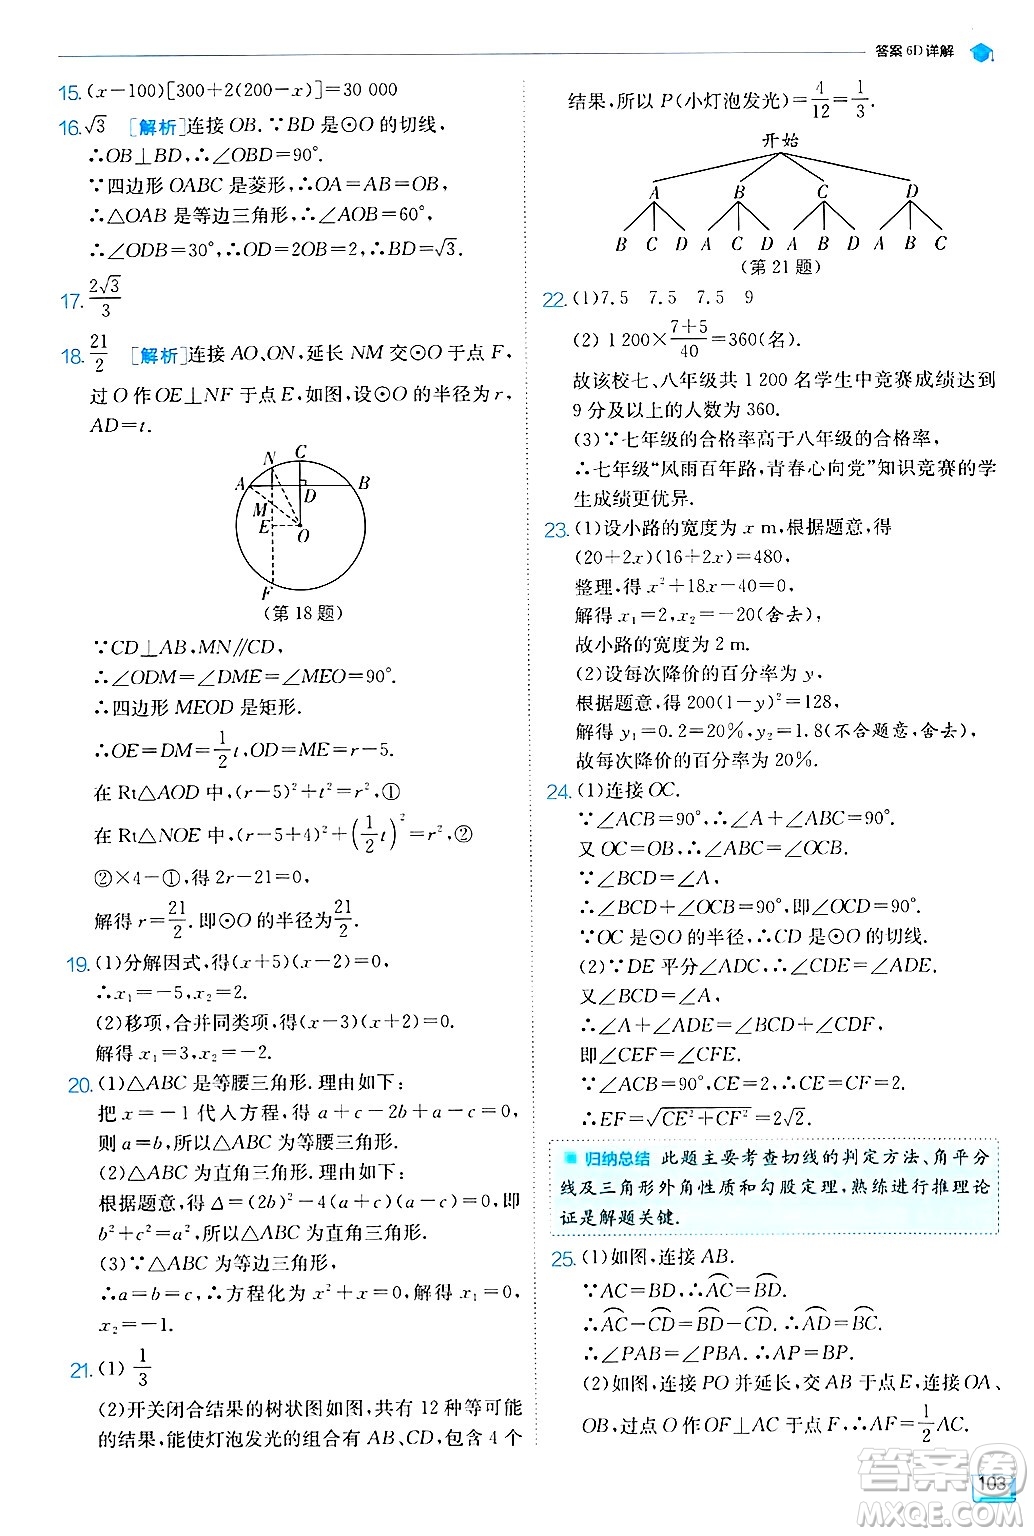 答案6D详解
15. (x-100)[300+2(200-x)]=30 000
16. √3 [解析]连接OB.∵BD是⊙O的切线,
∴OB⊥BD,∴∠OBD=90°.
∵四边形OABC是菱形,∴OA=AB=OB,
∴△OAB是等边三角形,∴∠AOB=60°,
∴∠ODB=30°,∴OD=2OB=2,∴BD=√3.
17. 2√3/3
18. 21/2 [解析]连接AO、ON,延长NM交⊙O于点F,
过O作OE⊥NF于点E,如图,设⊙O的半径为r,
AD=t.
N C
A D B
M
E O
F
(第18题)
∵CD⊥AB,MN∥CD,
∴∠ODM=∠DME=∠MEO=90°.
∴四边形MEOD是矩形.
∴OE=DM=1/2t,OD=ME=r-5.
在Rt△AOD中,(r-5)²+t²=r²,①
在Rt△NOE中,(r-5+4)²+(1/2t)²=r²,②
②×4-①,得2r-21=0,
解得r=21/2.即⊙O的半径为21/2.
19. (1)分解因式,得(x+5)(x-2)=0,
∴x₁=-5,x₂=2.
(2)移项,合并同类项,得(x-3)(x+2)=0.
解得x₁=3,x₂=-2.
20. (1)△ABC是等腰三角形.理由如下:
把x=-1代入方程,得a+c-2b+a-c=0,
则a=b,所以△ABC为等腰三角形.
(2)△ABC为直角三角形.理由如下:
根据题意,得Δ=(2b)²-4(a+c)(a-c)=0,即
b²+c²=a²,所以△ABC为直角三角形.
(3)∵△ABC为等边三角形,
∴a=b=c,∴方程化为x²+x=0,解得x₁=0,
x₂=-1.
21. (1) 1/3
(2)开关闭合结果的树状图如图,共有12种等可能
的结果,能使灯泡发光的组合有AB、CD,包含4个
结果,所以P(小灯泡发光)=4/12=1/3.
开始
A B C D
B C D A C D A B D A B C
(第21题)
22. (1)7.5 7.5 7.5 9
(2) 1 200×(7+5)/40=360(名).
故该校七、八年级共1 200名学生中竞赛成绩达到
9分及以上的人数为360.
(3)∵七年级的合格率高于八年级的合格率,
∴七年级“风雨百年路,青春心向党”知识竞赛的学
生成绩更优异.
23. (1)设小路的宽度为x m,根据题意,得
(20+2x)(16+2x)=480,
整理,得x²+18x-40=0,
解得x₁=2,x₂=-20(舍去),
故小路的宽度为2 m.
(2)设每次降价的百分率为y,
根据题意,得200(1-y)²=128,
解得y₁=0.2=20%,y₂=1.8(不合题意,舍去).
故每次降价的百分率为20%.
24. (1)连接OC.
∵∠ACB=90°,∴∠A+∠ABC=90°.
又OC=OB,∴∠ABC=∠OCB.
∵∠BCD=∠A,
∴∠BCD+∠OCB=90°,即∠OCD=90°.
∵OC是⊙O的半径,∴CD是⊙O的切线.
(2)∵DE平分∠ADC,∴∠CDE=∠ADE.
又∠BCD=∠A,
∴∠A+∠ADE=∠BCD+∠CDF,
即∠CEF=∠CFE.
∵∠ACB=90°,CE=2,∴CE=CF=2,
∴EF=√(CE²+CF²)=2√2.
归纳总结 此题主要考查切线的判定方法、角平分
线及三角形外角性质和勾股定理,熟练进行推理论
证是解题关键.
25. (1)如图,连接AB.
∵AC=BD,∴A͡C=B͡D.
∴A͡C-C͡D=B͡D-C͡D,∴A͡D=B͡C.
∴∠PAB=∠PBA.∴AP=BP.
(2)如图,连接PO并延长,交AB于点E,连接OA、
OB,过点O作OF⊥AC于点F,∴AF=1/2AC.
103
答案圈
MXQE.COM